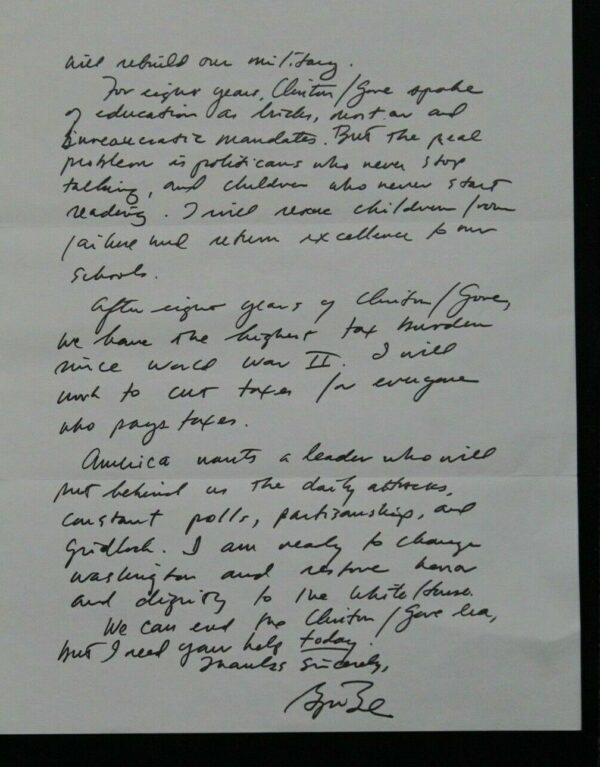 will rebuild our military.
For eight years, Clinton/Gore spoke
of education as bricks, mortar and
bureaucratic mandates. But the real
problem is politicians who never stop
talking, and children who never start
reading. I will rescue children from
failure and return excellence to our
schools.
After eight years of Clinton/Gore,
we have the highest tax burden
since World War II. I will
work to cut taxes for everyone
who pays taxes.
America wants a leader who will
put behind us the daily attacks,
constant polls, partisanship, and
gridlock. I am ready to change
Washington and restore honor
and dignity to the White House.
We can end the Clinton/Gore era,
but I need your help today.
Thanks Sincerely,